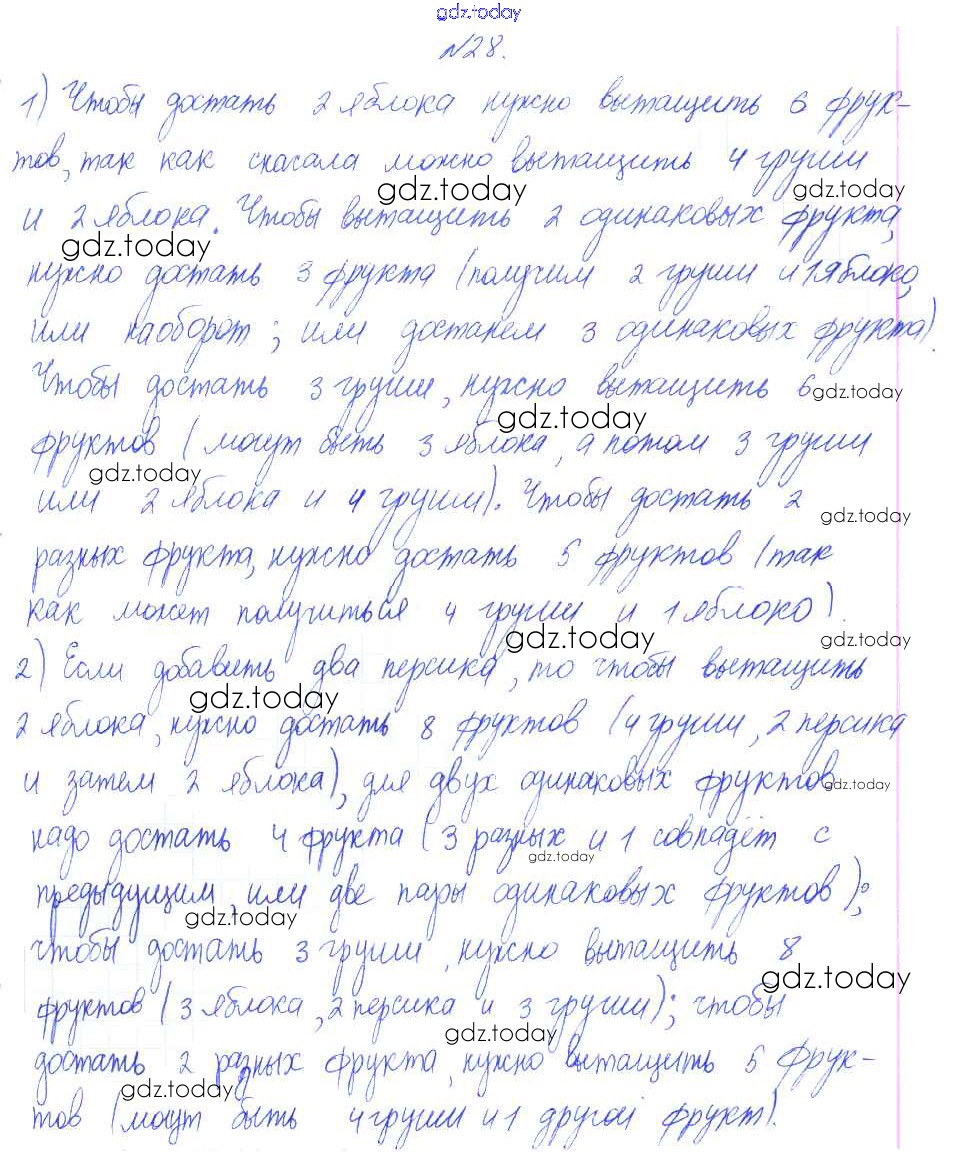 gdz.today
№28.
1) Чтобы достать 2 яблока нужно вытащить 6 фрук-
тов, так как сначала можно вытащить 4 груши
gdz.today gdz.today
и 2 яблока. Чтобы вытащить 2 одинаковых фрукта,
gdz.today
нужно достать 3 фрукта (получим 2 груши и 1 яблоко,
или наоборот; или достанем 3 одинаковых фрукта).
Чтобы достать 3 груши, нужно вытащить 6
gdz.today
gdz.today
фруктов (могут быть 3 яблока, а потом 3 груши
gdz.today
или 2 яблока и 4 груши). Чтобы достать 2
gdz.today
разных фрукта, нужно достать 5 фруктов (так
как может получиться 4 груши и 1 яблоко).
gdz.today gdz.today
2) Если добавить два персика, то чтобы вытащить
gdz.today
2 яблока, нужно достать 8 фруктов (4 груши, 2 персика
и затем 2 яблока), для двух одинаковых фруктов
gdz.today
надо достать 4 фрукта (3 разных и 1 совпадёт с
gdz.today
предыдущим, или две пары одинаковых фруктов);
gdz.today
чтобы достать 3 груши, нужно вытащить 8
gdz.today
фруктов (3 яблока, 2 персика и 3 груши); чтобы
gdz.today
достать 2 разных фрукта, нужно вытащить 5 фрук-
gdz.today
тов (могут быть 4 груши и 1 другой фрукт).